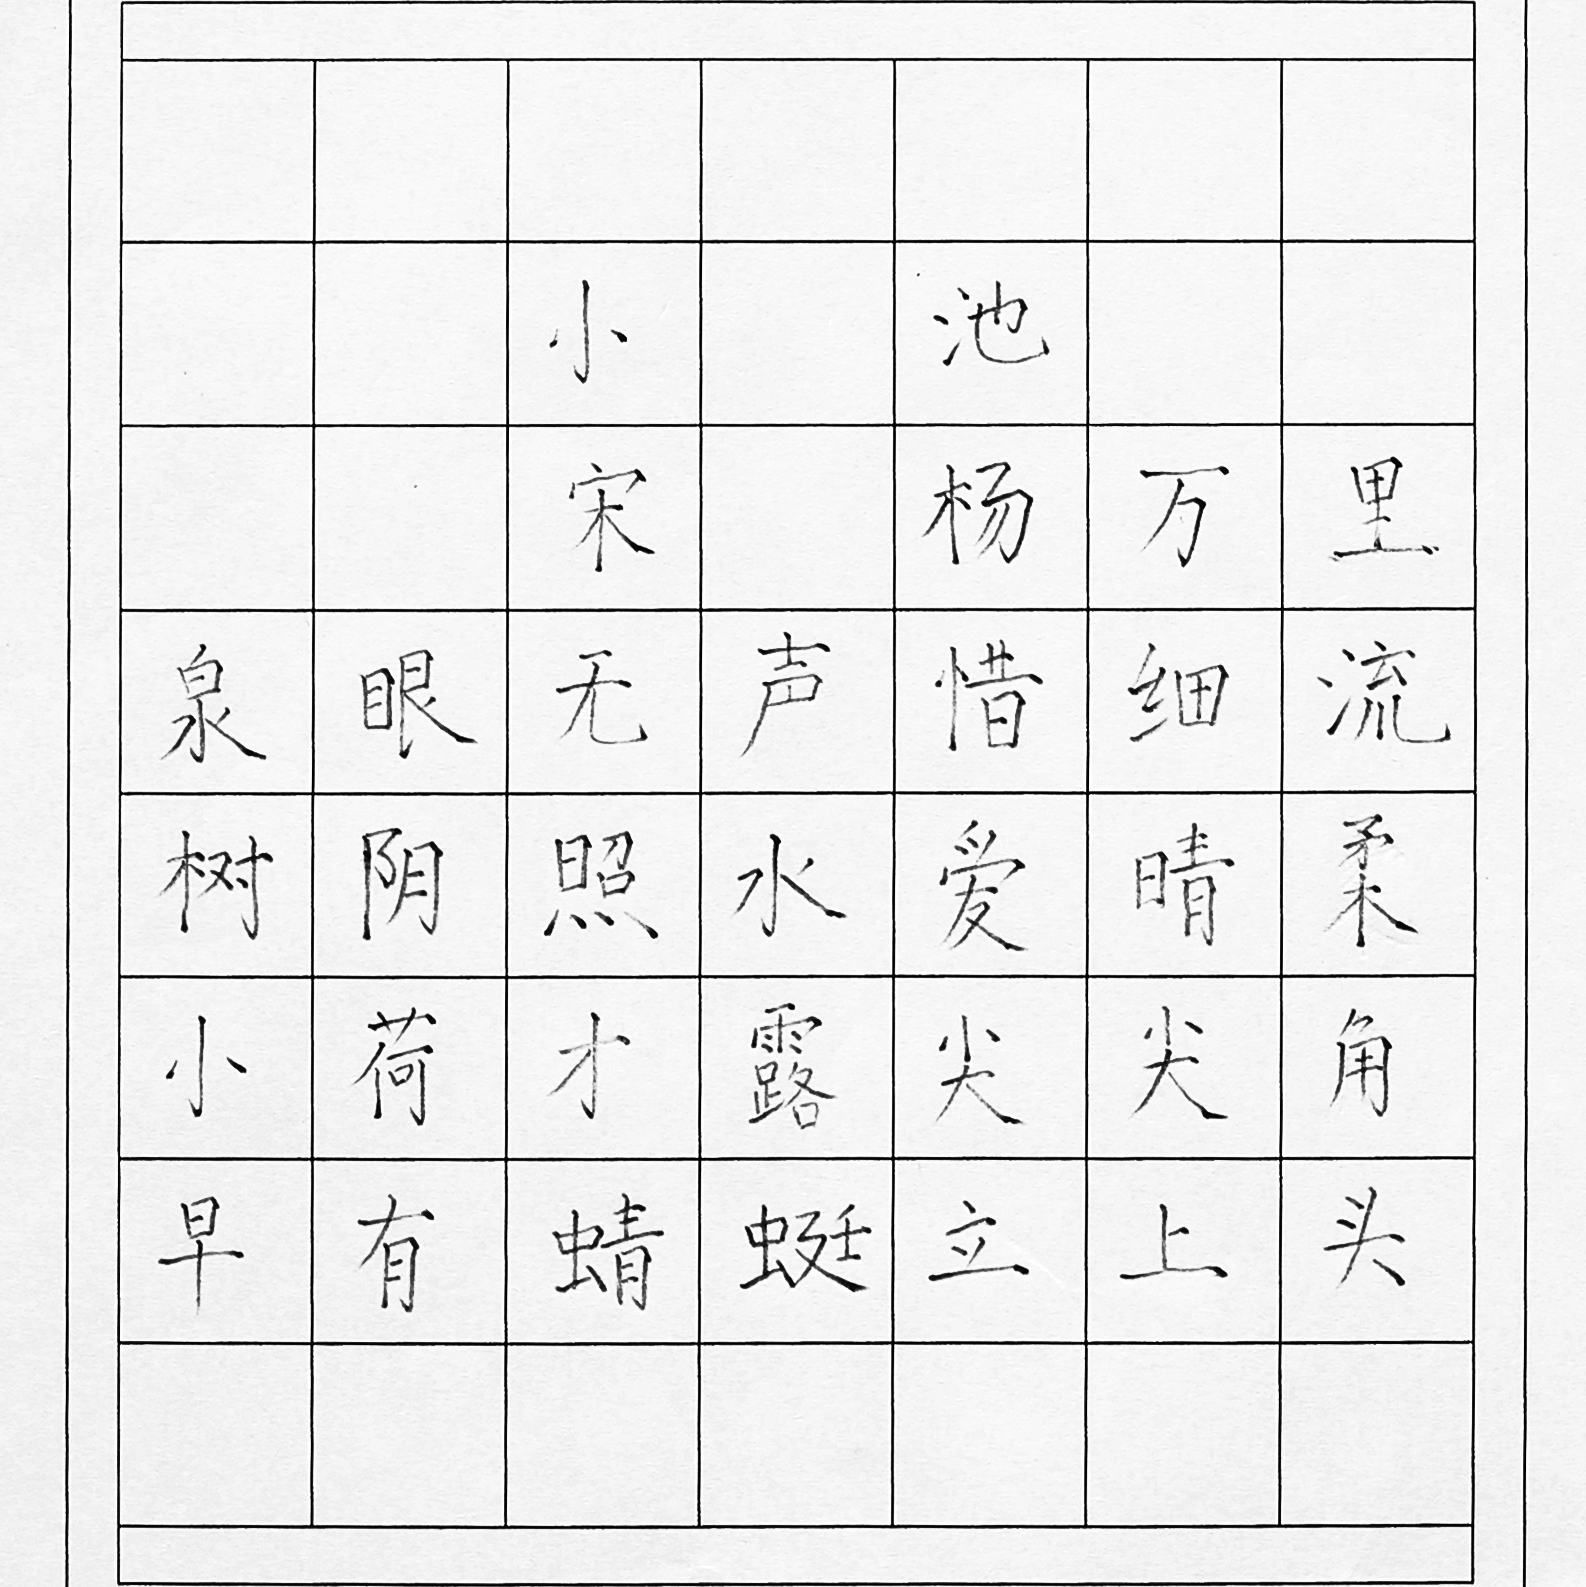 小池
宋 杨万里
泉眼无声惜细流
树阴照水爱晴柔
小荷才露尖尖角
早有蜻蜓立上头